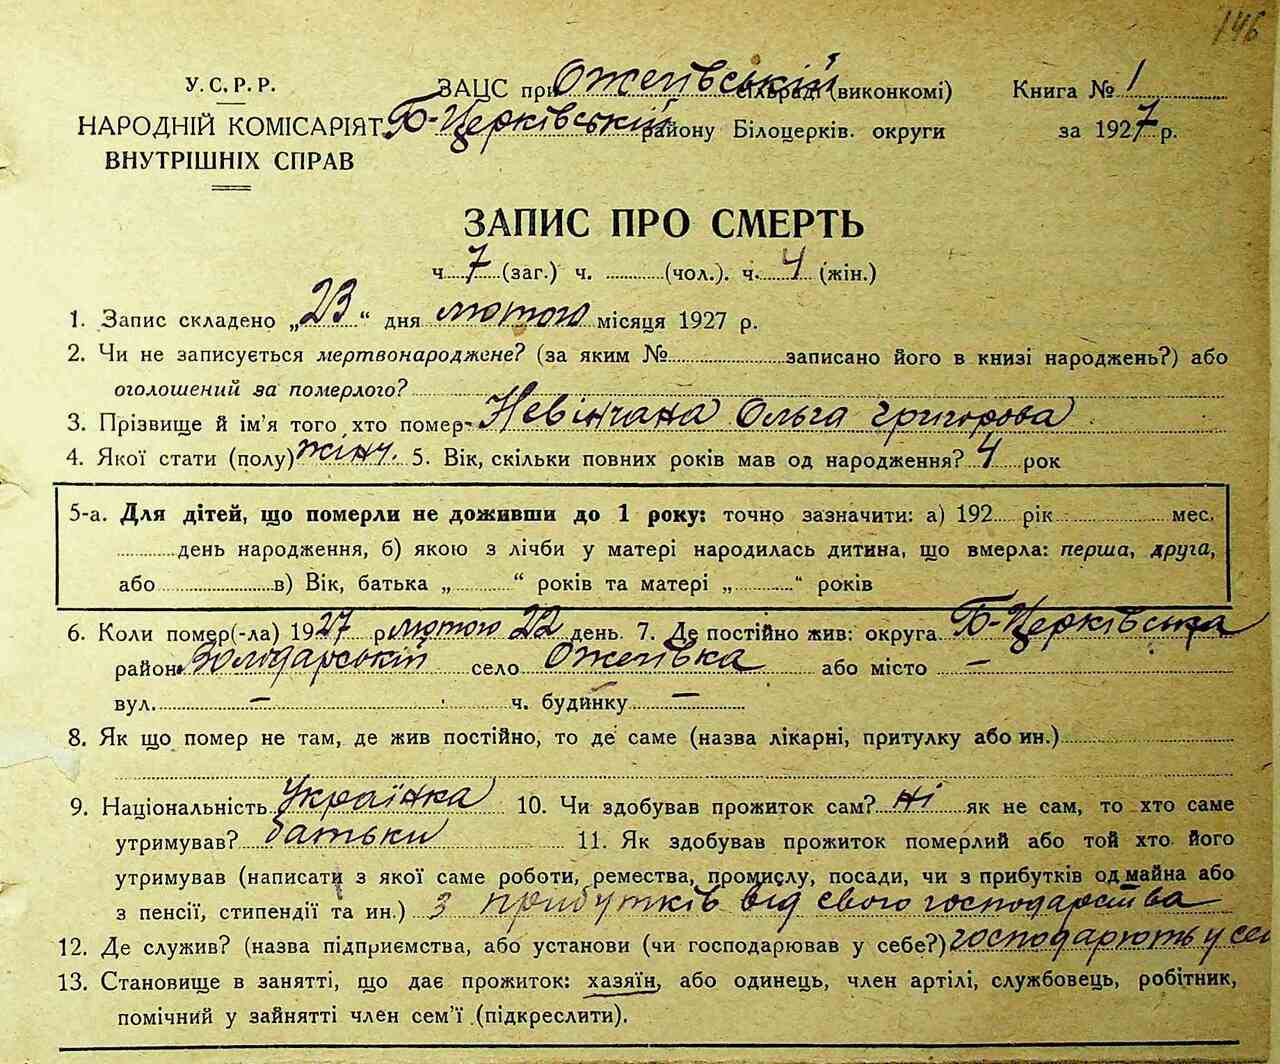 146
У.С.Р.Р. ЗАЦС при Ожегівській сільраді (виконкомі) Книга № 1
НАРОДНІЙ КОМІСАРІЯТ Б-Церківський району Білоцерків. округи за 1927 р.
ВНУТРІШНІХ СПРАВ
ЗАПИС ПРО СМЕРТЬ
ч. 7 (заг.) ч. (чол.). ч. 4 (жін.)
1. Запис складено „23“ дня лютого місяця 1927 р.
2. Чи не записується мертвонароджене? (за яким № записано його в книзі народжень?) або
оголошений за померлого?
3. Прізвище й ім'я того, хто помер Невінчана Ольга Григорова
4. Якої стати (полу) жіноч. 5. Вік, скільки повних років мав од народження? 4 рок
5-а. Для дітей, що померли не доживши до 1 року: точно зазначити: а) 192 рік мес.
день народження, б) якою з лічби у матері народилась дитина, що вмерла: перша, друга,
або в) Вік, батька „ “ років та матері „ “ років
6. Коли помер(-ла) 1927 р лютого 22 день. 7. Де постійно жив: округа Б-Церківська
район Володарський село Ожегівка або місто —
вул. — ч. будинку —
8. Як що помер не там, де жив постійно, то де саме (назва лікарні, притулку або ин.)
9. Національність Українка 10. Чи здобував прожиток сам? ні як не сам, то хто саме
утримував? батьки 11. Як здобував прожиток померлий або той хто його
утримував (написати з якої саме роботи, ремества, промислу, посади, чи з прибутків од майна або
з пенсії, стипендії та ин.) з прибутків від свого господарства
12. Де служив? (назва підприємства, або установи (чи господарював у себе?) господарють у се
13. Становище в занятті, що дає прожиток: хазяїн, або одинець, член артілі, службовець, робітник,
помічний у зайнятті член сем'ї (підкреслити).